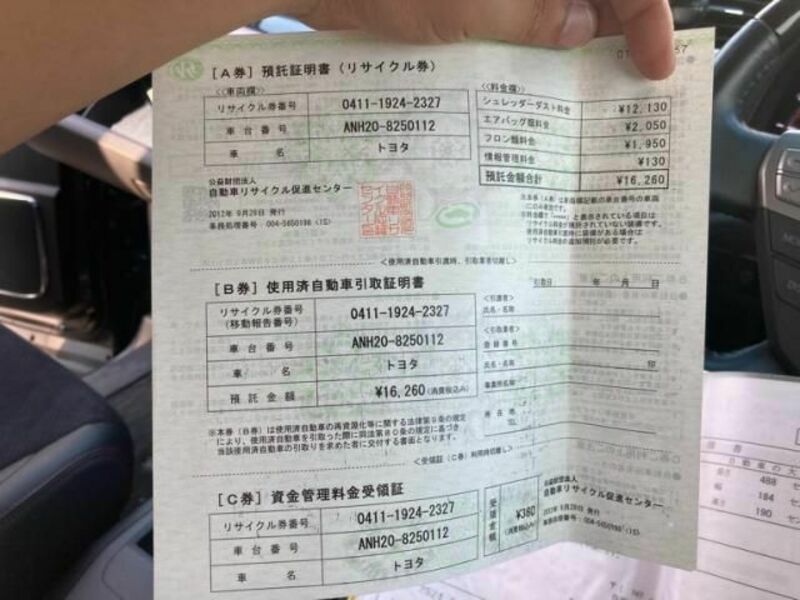 [A券] 預託証明書（リサイクル券）
<<車両欄>>
リサイクル券番号 0411-1924-2327
車台番号 ANH20-8250112
車名 トヨタ
<<料金欄>>
シュレッダーダスト料金 ¥12,130
エアバッグ類料金 ¥2,050
フロン類料金 ¥1,950
情報管理料金 ¥130
預託金額合計 ¥16,260
公益財団法人
自動車リサイクル促進センター
2012年 9月28日 発行
事務処理番号：004-5650198 (1S)
<使用済自動車引渡時、引取業者切離し>
[B券] 使用済自動車引取証明書
引取日 年 月 日
リサイクル券番号
(移動報告番号) 0411-1924-2327
車台番号 ANH20-8250112
車名 トヨタ
預託金額 ¥16,260 (消費税込み)
<引渡者>
氏名・名称
<引取業者>
登録番号
氏名・名称 印
事業所名
所在地
TEL
※本券（B券）は使用済自動車の再資源化等に関する法律第9条の規定
により、使用済自動車を引取った際に同法第80条の規定に基づき
当該使用済自動車の引取りを求めた者に交付する書面となります。
<受領証（C券）利用時切離し>
[C券] 資金管理料金受領証
リサイクル券番号 0411-1924-2327
車台番号 ANH20-8250112
車名 トヨタ
受領金額 ¥380
(消費税込み)
公益財団法人
自動車リサイクル促進センター
2012年 9月28日 発行
事務処理番号：004-5650198 (1S)
488
184
190